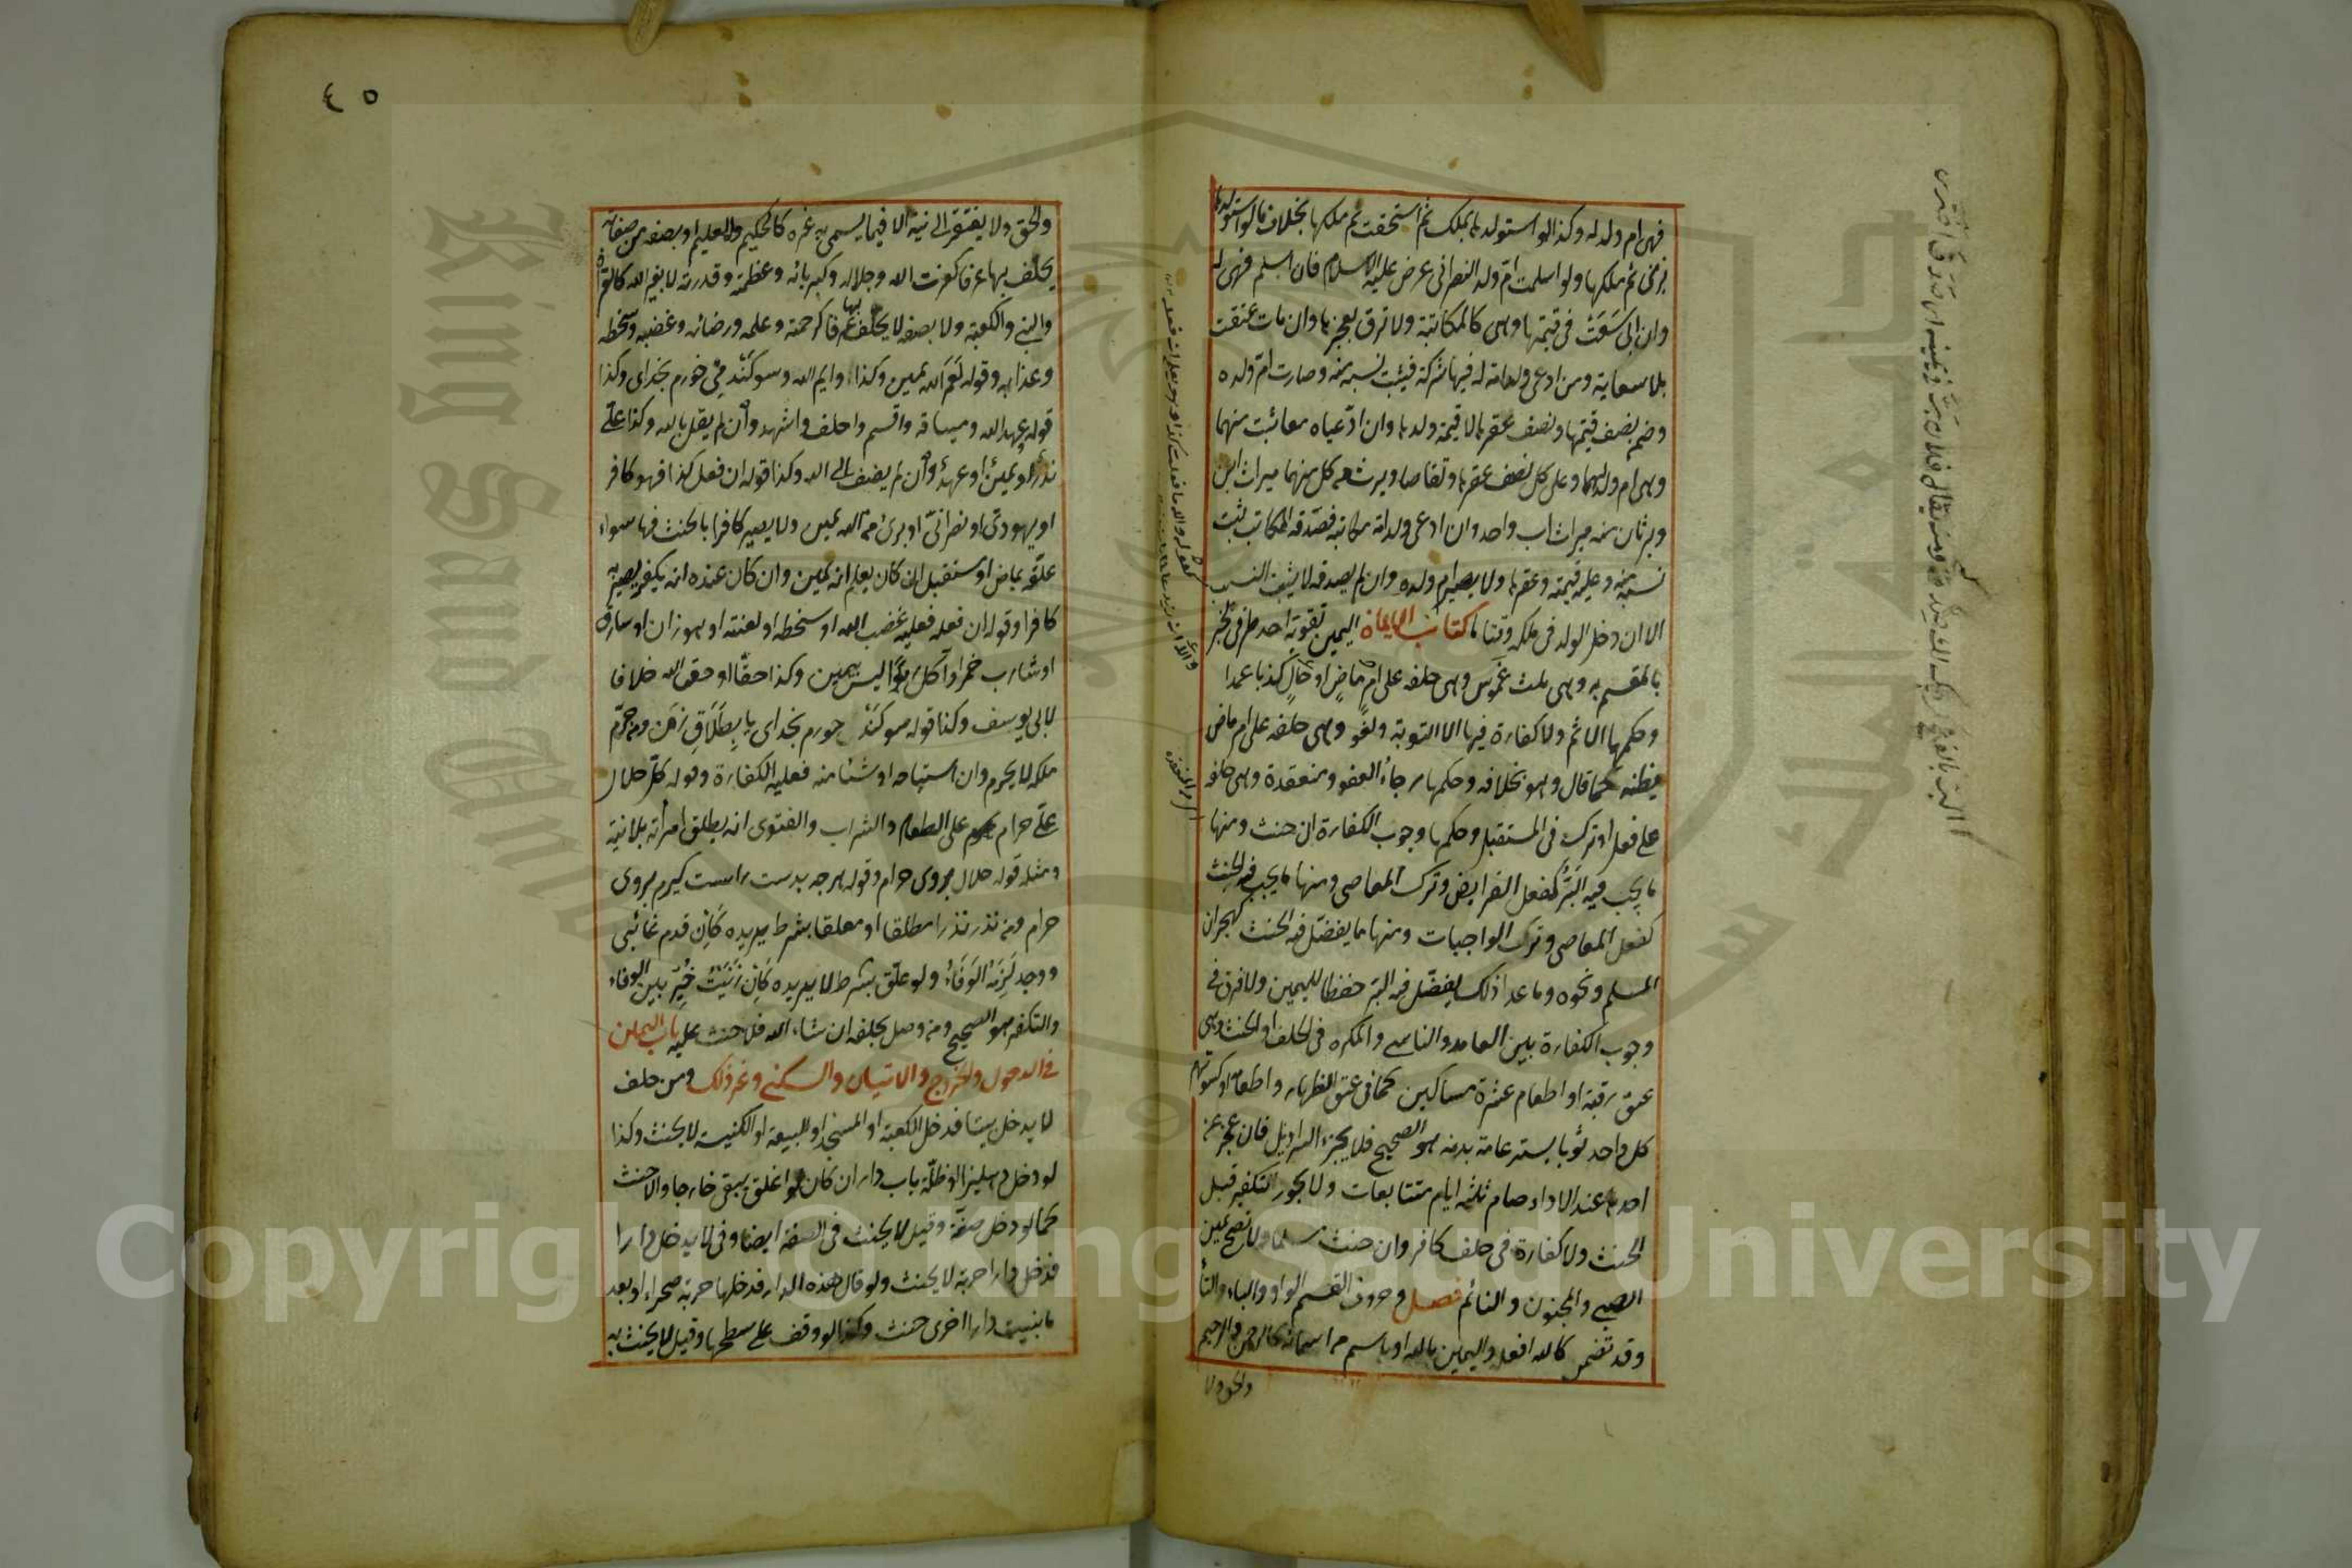 فهى ام ولد له وكذا لو استولدها بملك ثم استحقت ثم ملكها بخلاف ما لو استولدها
بزنى ثم ملكها ولو اسلمت ام ولد النصرانى عرض عليه الاسلام فان اسلم فهى له
وان ابى سَعَتْ فى قيمتها وهى كالمكاتبة ولا ترق بعجزها وان مات عتقت
بلا سعاية ومن ادعى ولد امة له فيها شركة فيثبت نسبه منه وصارت ام ولده
وضمن نصف قيمتها ونصف عقرها لا قيمة ولدها وان ادّعياه معا ثبت منهما
وهى ام ولد لهما وعلى كل نصف عقرها وتقاصا ويرث من كل منهما ميراث ابن
ويرثان منه ميراث اب واحد وان ادعى ولد امة مكاتبه فصدقه المكاتب ثبت
نسبه منه وعليه قيمته وعقرها ولا تصير ام ولده وان لم يصدقه لا يثبت النسب
الا ان دخل الولد فى ملكه وقتا ما كتاب الايمان اليمين تقوية احد طرفى الخبر
بالمقسم به وهى ثلث غموس وهى حلفه على امر ماضٍ او حالٍ كذبا عمدا
وحكمها الاثم ولا كفارة فيها الا التوبة ولغو وهى حلفه على امر ماض
يظنه كما قال وهو بخلافه وحكمها رجاء العفو ومنعقدة وهى حلفه
على فعل او ترك فى المستقبل وحكمها وجوب الكفارة ان حنث ومنها
ما يجب فيه البَرّ كفعل الفرايض وترك المعاصى ومنها ما يجب فيه الحنث
كفعل المعاصى وترك الواجبات ومنها ما يفضّل فيه الحنث كهجران
المسلم ونحوه وما عدا ذلك يفضّل فيه البرّ حفظا لليمين ولا فرق فى
وجوب الكفارة بين العامد والناسى والمكره فى الحلف او الحنث وهى
عتق رقبة او اطعام عشرة مساكين كما فى عتق الظهار واطعامه او كسوتهم
كل واحد ثوبا يستر عامة بدنه هو الصحيح فلا يجزئ السراويل فان عجز عن
احدها عند الاداء صام ثلثة ايام متتابعات ولا يجوز التكفير قبل
الحنث ولا كفارة فى حلف كافر وان حنث مسلما ولا تصح يمين
الصبى والمجنون والنائم فصل وحروف القسم الواو والباء والتاء
وقد تضمر كالله افعله واليمين بالله او باسم من اسمائه كالرحمن والرحيم
والحق ولا
٤٥
والحق ولا يفتقر الى نية الا فيما يسمى به غيره كالحكيم والعليم او بصفة من صفاته
يحلف بها عرفا كعزت الله وجلاله وكبريائه وعظمته وقدرته لا بغير الله كالقرآن
والنبى والكعبة ولا بصفة لا يحلف بها عرفا كرحمته وعلمه ورضائه وغضبه وسخطه
وعذابه وقوله لَعَمر الله يمين وكذا وايم الله وسوكند مى خورم بخداى وكذا
قوله وعهد الله وميثاقه واقسم واحلف واشهد وان لم يقل بالله وكذا علىّ
نذر او يمين او عهد وان لم يضف الى الله وكذا قوله ان فعل كذا فهو كافر
او يهودى او نصرانى او برئ من الله يمين ولا يصير كافرا بالحنث فيها سواء
علقه بماض او مستقبل ان كان يعلم انه يمين وان كان عنده انه يكفر يصير به
كافرا وقوله ان فعله فعليه غضب الله او سخطه او لعنته او هو زان او سارق
او شارب خمر او آكل ربوا ليس بيمين وكذا حقا او حق الله خلافا
لابى يوسف وكذا قوله سوكند خورم بخداى يا بطلاق زن ومن حرم
ملكه لا يحرم وان استباحه او شئا منه فعليه الكفارة وقوله كل حلال
علىّ حرام على الطعام والشراب والفتوى انه يطلق امرأته بلا نية
ومثله قوله حلال بروى حرام وقوله هرچه بدست راست كيرم بروى
حرام ومن نذر نذرا مطلقا او معلقا بشرط يريده كان قدم غائبى
ووجد لزمه الوفاء ولو علق بشرط لا يريده كان زنيت خيّر بين الوفاء
والتكفير هو الصحيح ومن وصل بحلفه ان شاء الله فلا حنث عليه باب اليمين
فى الدخول والخروج والاتيان والسكنى وغير ذلك ومن حلف
لا يدخل بيتا فدخل الكعبة او المسجد او البيعة او الكنيسة لا يحنث وكذا
لو دخل دهليزا او ظلة باب دار ان كان لو اغلق يبقى خارجا والا حنث
كما لو دخل صفة وقيل لا يحنث فى الصفة ايضا وفى لا يدخل دارا
فدخل دارا خربة لا يحنث ولو قال هذه الدار فدخلها خربة صحراء او بعد
ما بنيت دارا اخرى حنث وكذا لو وقف على سطحها وقيل لا يحنث به
Copyright © King Saud University